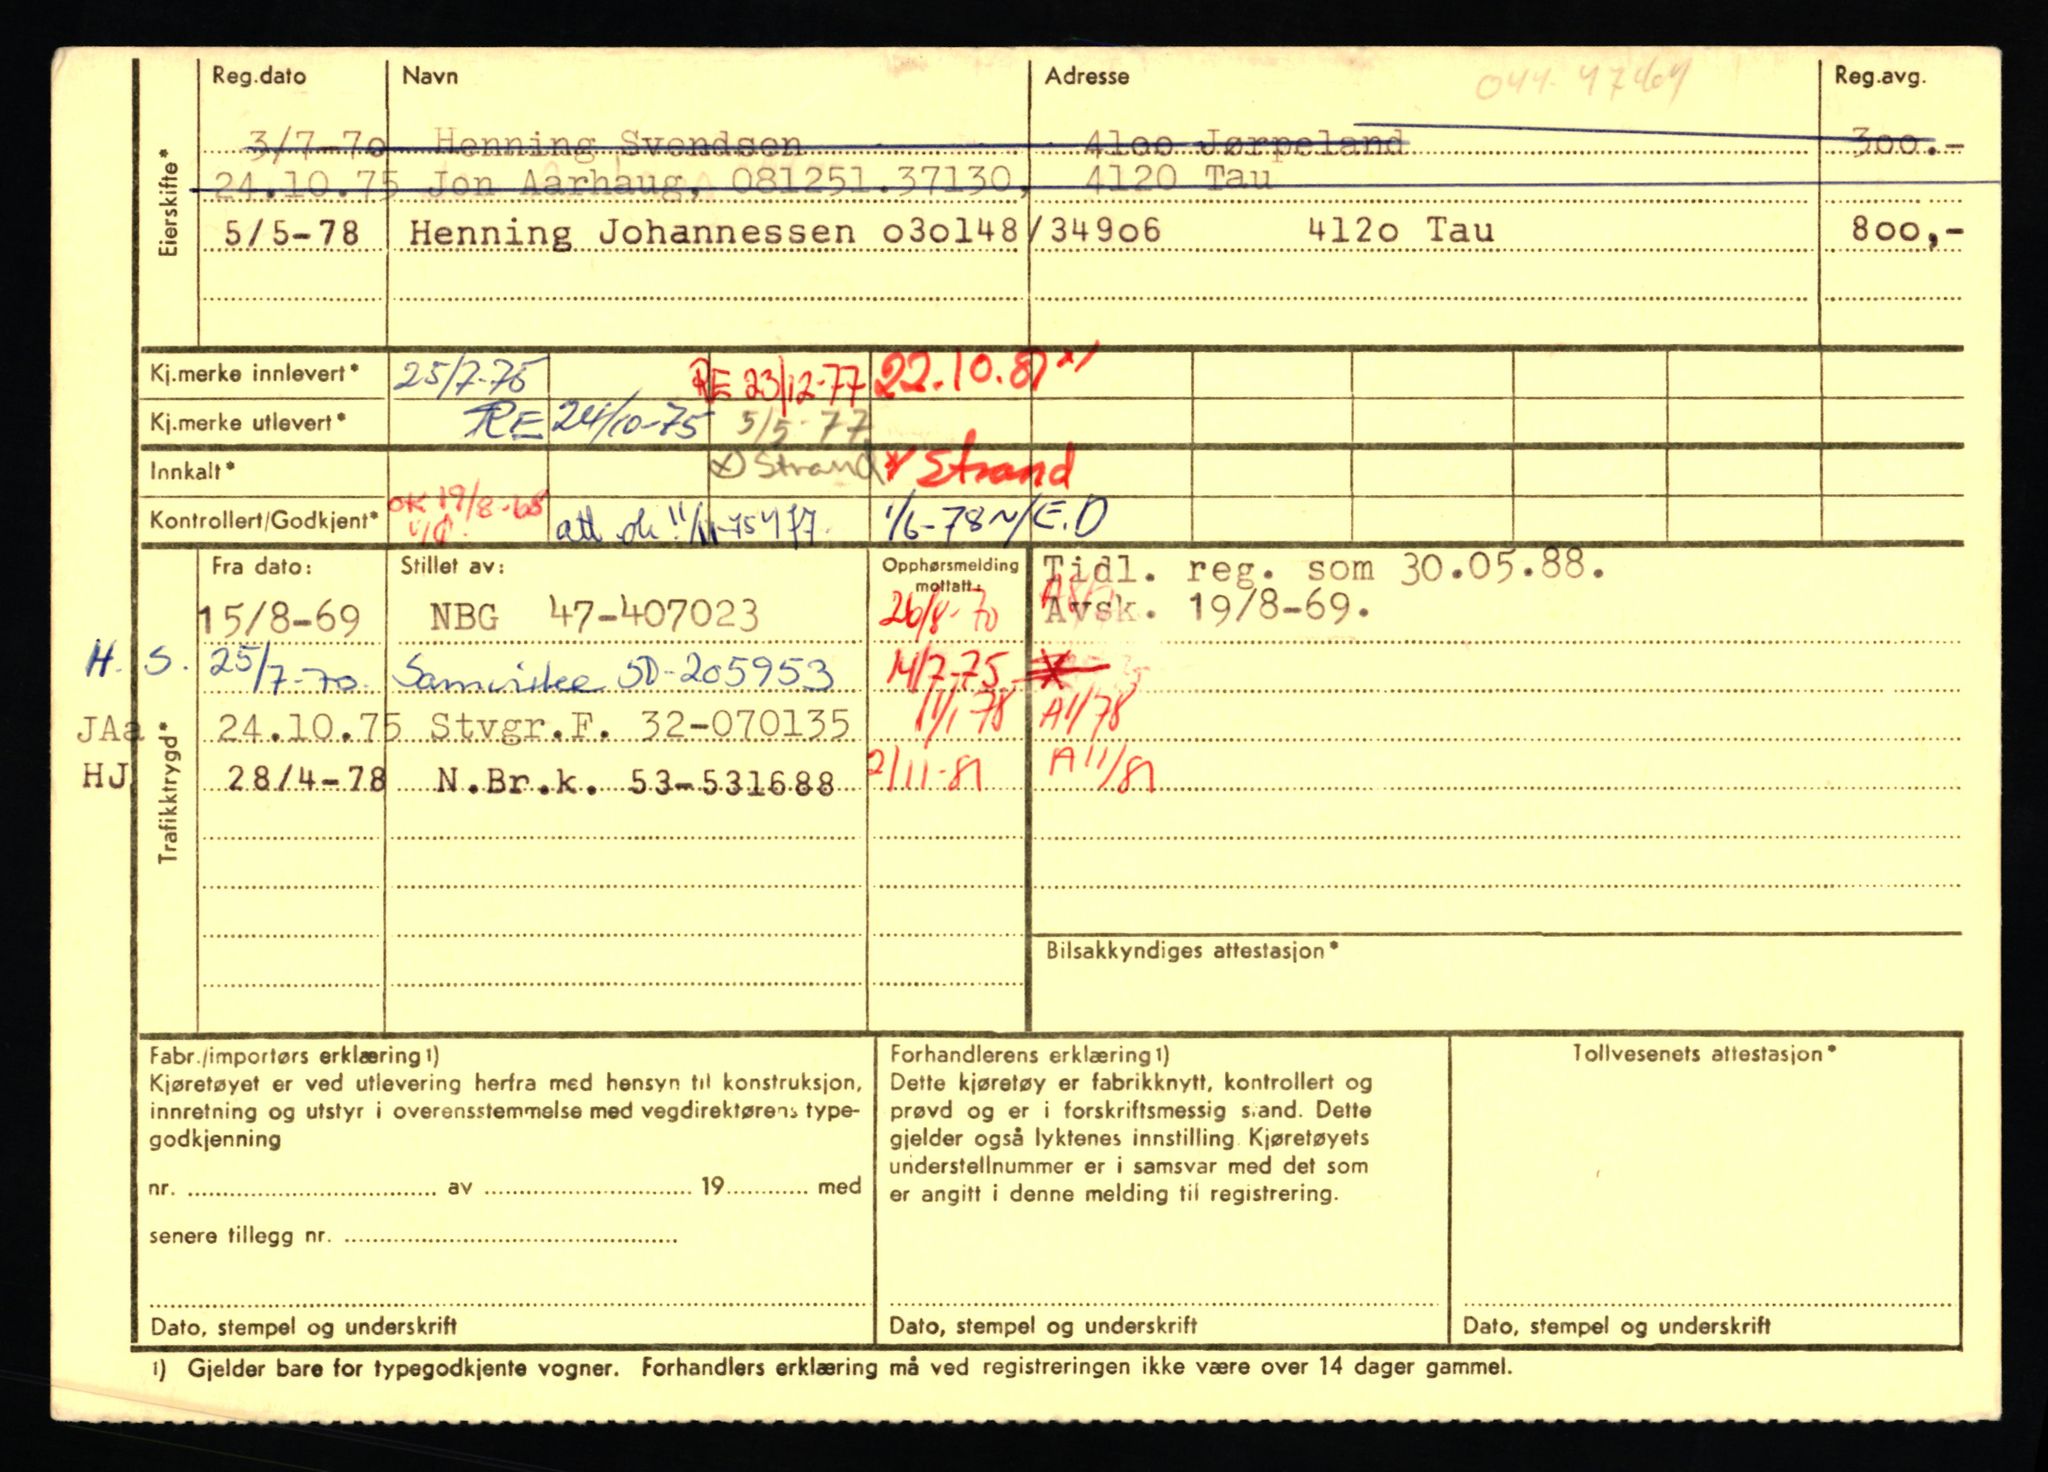 Reg.dato Navn Adresse Reg.avg.
Eierskifte*
3/7-7o Henning Svendsen 41oo Jørpeland 3oo.-
24.10.75 Jon Aarhaug, 081251.37130, 4120 Tau
5/5-78 Henning Johannessen o3o148/349o6 412o Tau 8oo,-
Kj.merke innlevert* 25/7-75 RE 23/12-77 22.10.81 x/
Kj.merke utlevert* RE 24/10-75 5/5-77
Innkalt* x) Strand x/ Strand
Kontrollert/Godkjent* OK 19/8-68 att ok 11/11-75 1/6-78 E.D
Trafikktrygd*
Fra dato: Stillet av: Opphørsmelding mottatt
Tidl. reg. som 30.05.88.
15/8-69 NBG 47-407023 26/8-70 Avsk. 19/8-69.
H. S. 25/7-70 Samvirke SD-205953 14/7-75
JAa 24.10.75 Stvgr.F. 32-070135 11/1-78 A1/78
HJ 28/4-78 N.Br.k. 53-531688 2/11-81 A 11/81
Bilsakkyndiges attestasjon*
Fabr./importørs erklæring 1)
Kjøretøyet er ved utlevering herfra med hensyn til konstruksjon,
innretning og utstyr i overensstemmelse med vegdirektørens type-
godkjenning
nr. av 19 med
senere tillegg nr.
Dato, stempel og underskrift
Forhandlerens erklæring 1)
Dette kjøretøy er fabrikknytt, kontrollert og
prøvd og er i forskriftsmessig stand. Dette
gjelder også lyktenes innstilling. Kjøretøyets
understellnummer er i samsvar med det som
er angitt i denne melding til registrering.
Dato, stempel og underskrift
Tollvesenets attestasjon*
Dato, stempel og underskrift
1) Gjelder bare for typegodkjente vogner. Forhandlers erklæring må ved registreringen ikke være over 14 dager gammel.